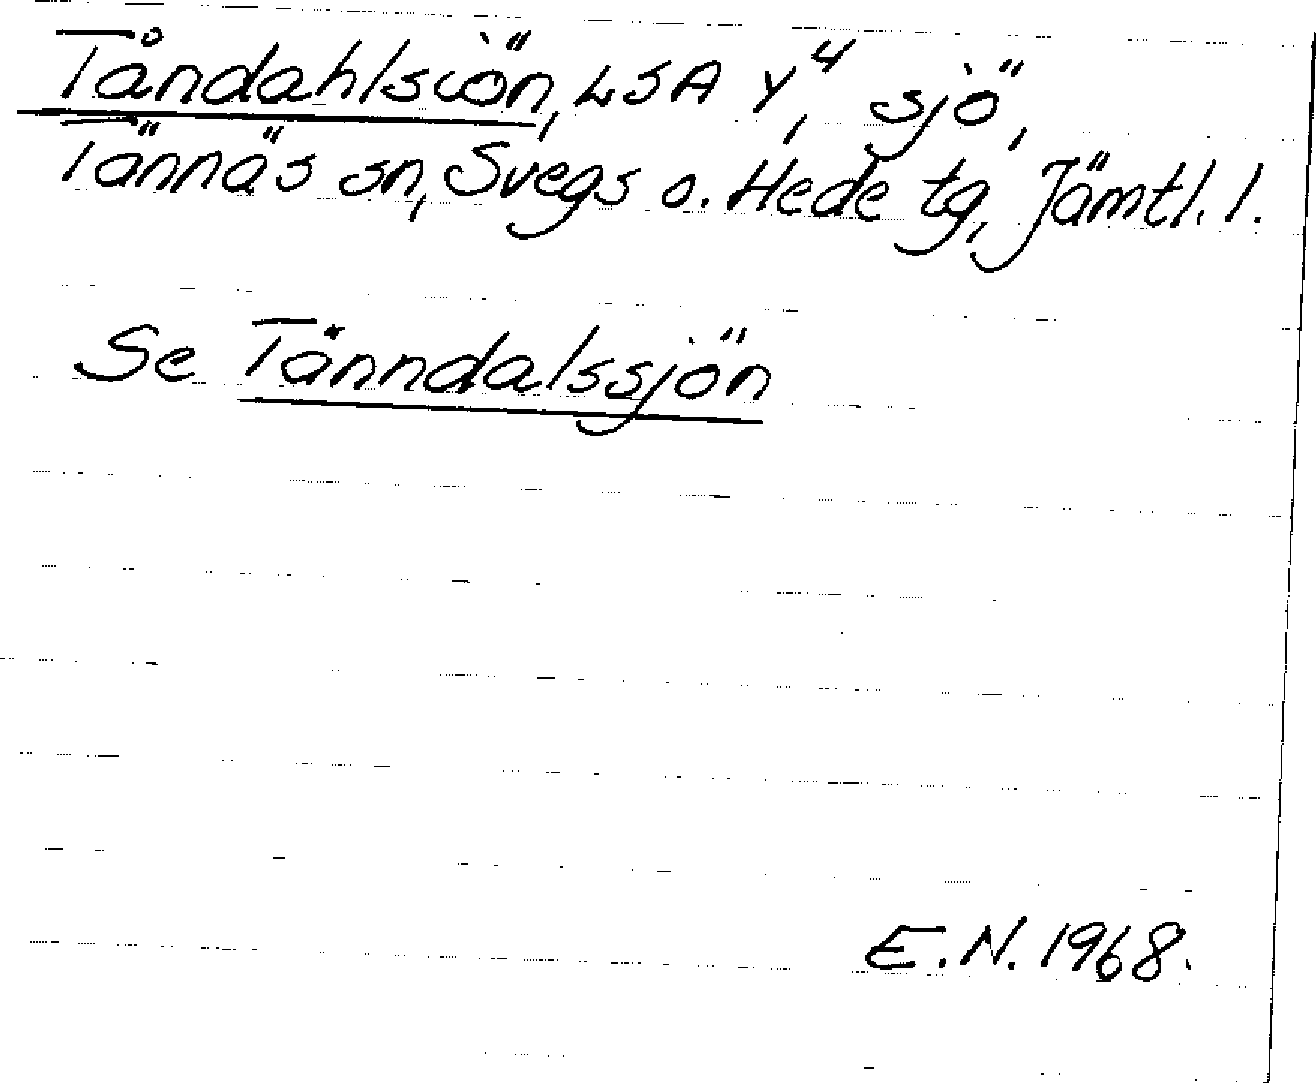 Tåndahlsiön, LSA Y⁴, sjö,
Tännäs sn, Svegs o. Hede tg, Jämtl. l.
Se Tänndalssjön
E.N. 1968.